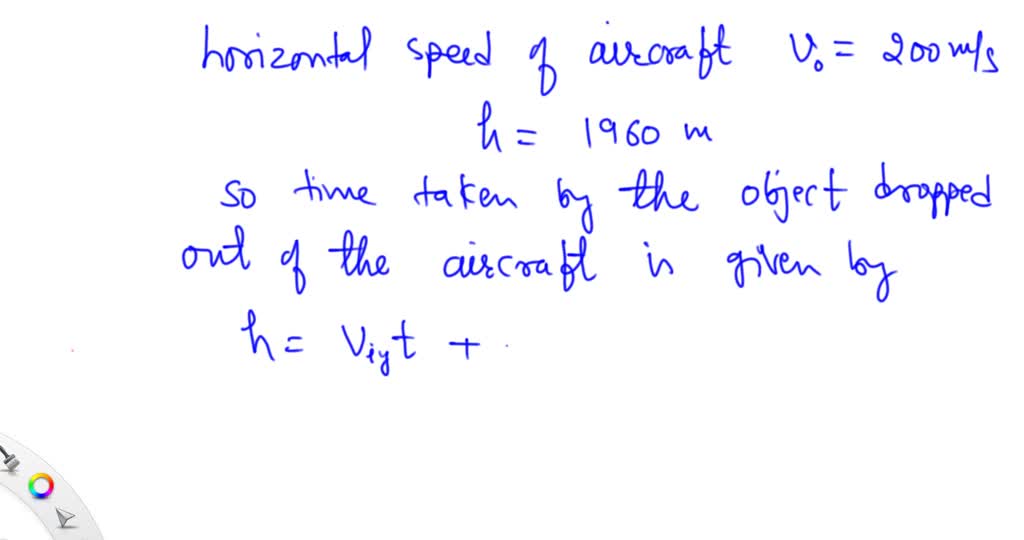 horizontal speed of aircraft V₀ = 200 m/s
h = 1960 m
so time taken by the object dropped
out of the aircraft is given by
h = Viyt +